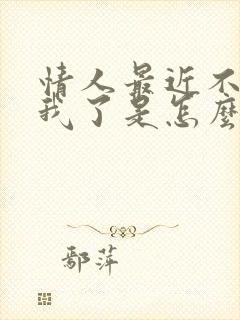 情人最近不
我了是怎麼
鄢萍